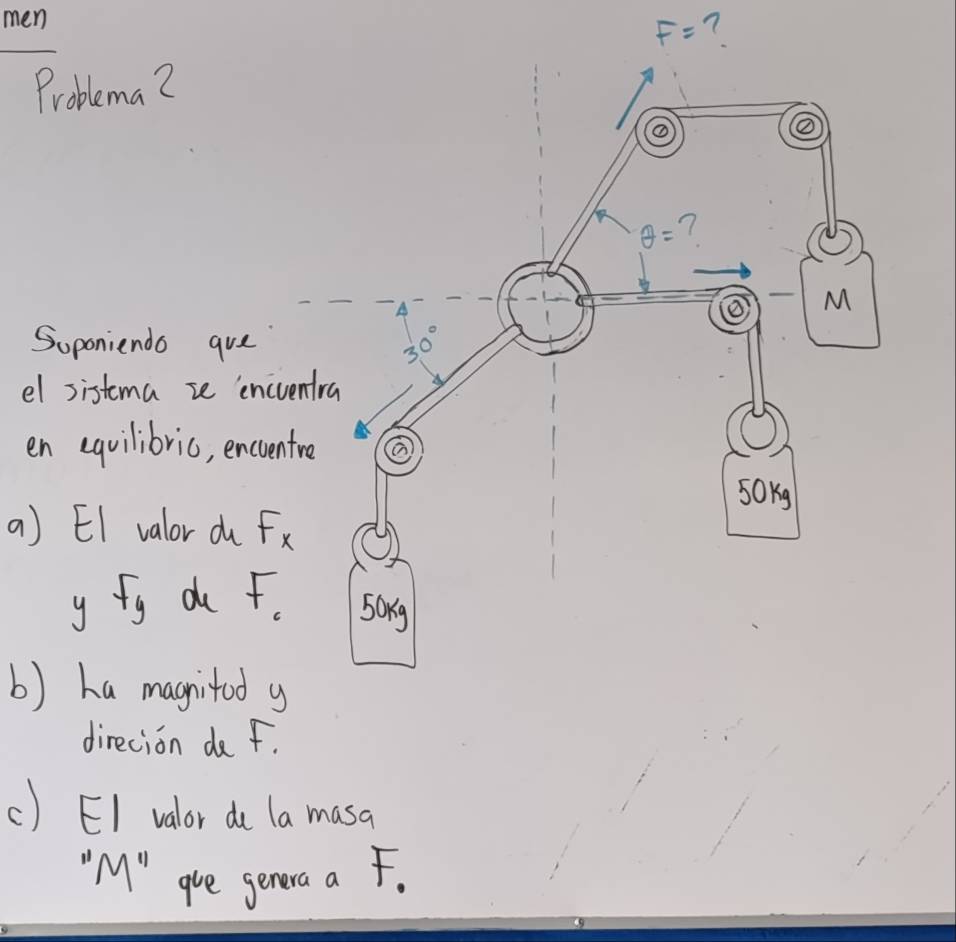 men
Problema 2
F = ?
θ = ?
30°
M
50Kg
50Kg
Suponiendo que
el sistema se encuentra
en equilibrio, encuentre
a) El valor de Fx
y Fy de F.
b) La magnitud y
direción de F.
c) El valor de la masa
"M" que genera a F.